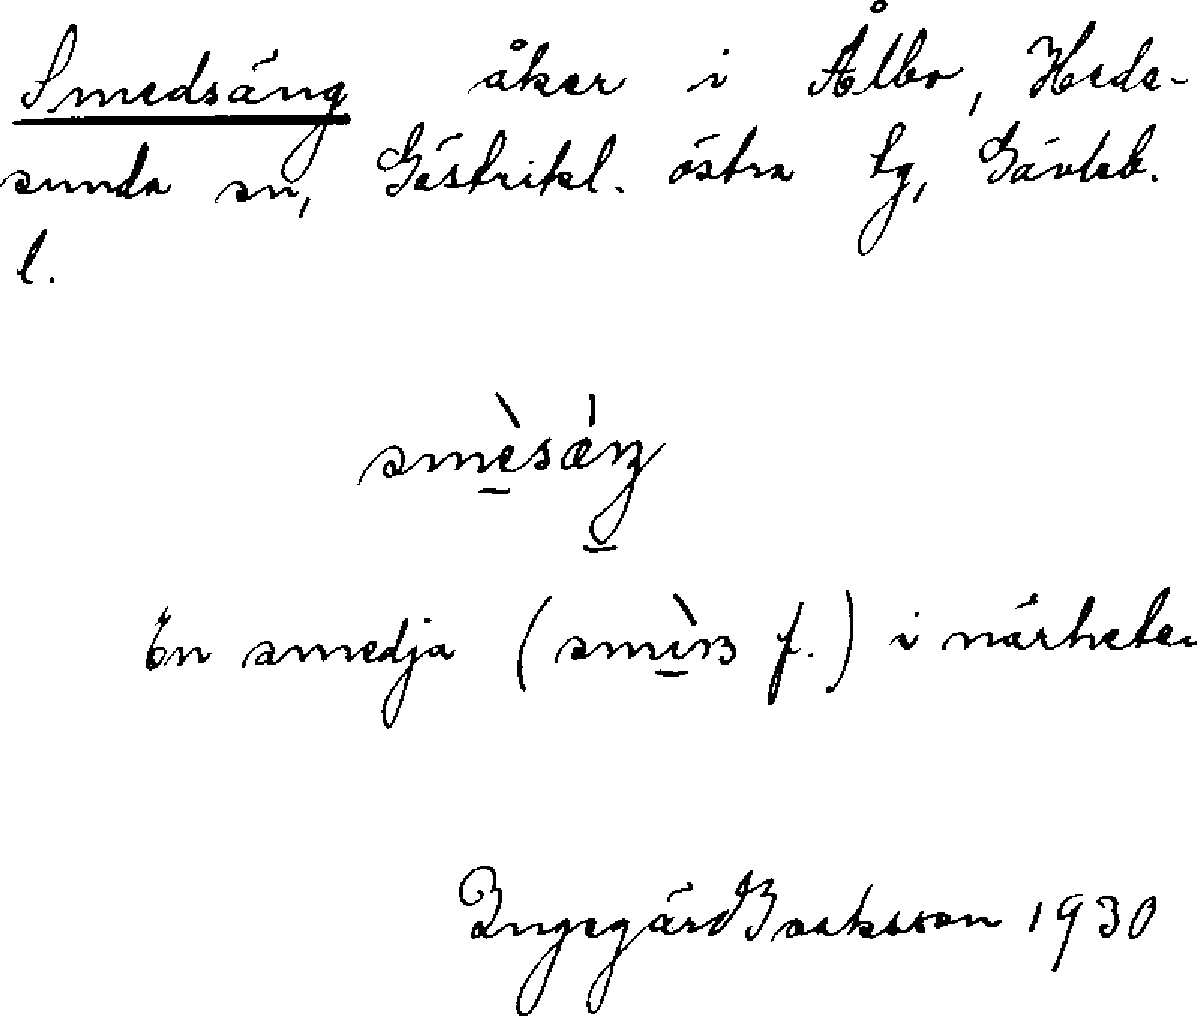 Smedsäng åker i Ålbo, Hede-
sunda sn, Gästrikl. östra tg, Gävleb.
l.
smèsǽŋ
En smedja (smìɴ f.) i närheten
Ingegärd Isaksson 1930